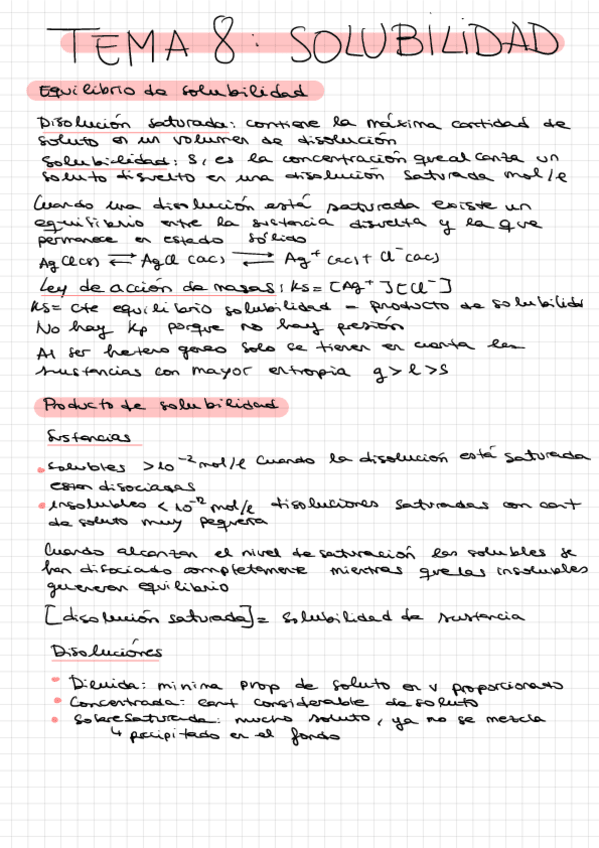 TEMA 8: SOLUBILIDAD
Equilibrio de solubilidad
Disolución saturada: contiene la máxima cantidad de
soluto en un volumen de disolución
Solubilidad: S, es la concentración que alcanza un
soluto disuelto en una disolución saturada mol/l
Cuando una disolución está saturada existe un
equilibrio entre la sustancia disuelta y la que
permanece en estado sólido
AgCl(s) ⇌ AgCl (ac) ⇌ Ag⁺ (ac) + Cl⁻ (ac)
Ley de acción de masas: Ks = [Ag⁺][Cl⁻]
Ks = cte equilibrio solubilidad = producto de solubilidad
No hay Kp porque no hay presión
Al ser heterogeneo solo se tienen en cuenta las
sustancias con mayor entropia g > l > s
Producto de solubilidad
Sustancias
• solubles > 10⁻² mol/l Cuando la disolución está saturada
estan disociadas
• insolubles < 10⁻² mol/l disoluciones saturadas con cant
de soluto muy pequeña
Cuando alcanzan el nivel de saturación las solubles se
han disociado completamente mientras que las insolubles
generan equilibrio
[disolución saturada] = solubilidad de sustancia
Disoluciónes
• Diluida: minima prop de soluto en v proporcionado
• Concentrada: cant considerable de soluto
• Sobresaturada: mucho soluto, ya no se mezcla
↳ precipitado en el fondo